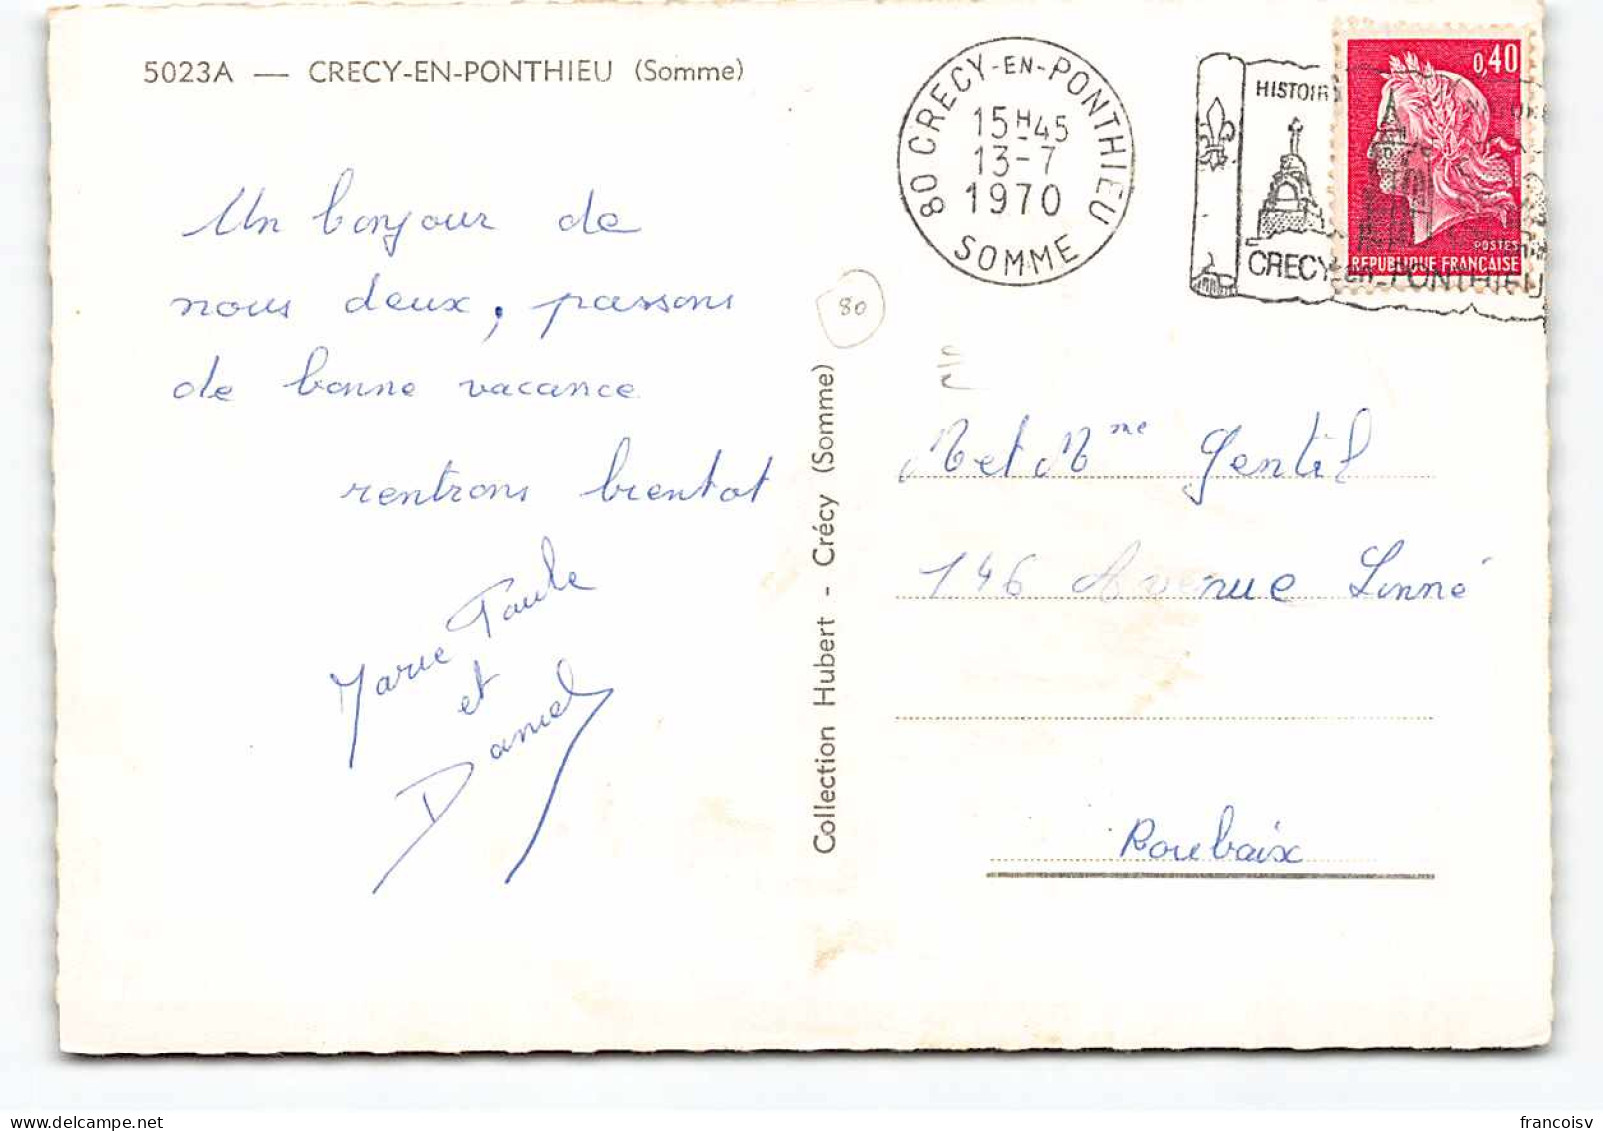 5023A — CRECY-EN-PONTHIEU (Somme)
Un bonjour de
nous deux, passons
de bonne vacance
rentrons bientot
Marie Paule
et
Daniel
80
Collection Hubert - Crécy (Somme)
80 CRECY-EN-PONTHIEU
15H45
13-7
1970
SOMME
HISTOIR
CRECY-en-PONTHIEU
0,40
POSTES
REPUBLIQUE FRANÇAISE
M et Mme Gentil
146 Avenue Linné
Roubaix
francoisv